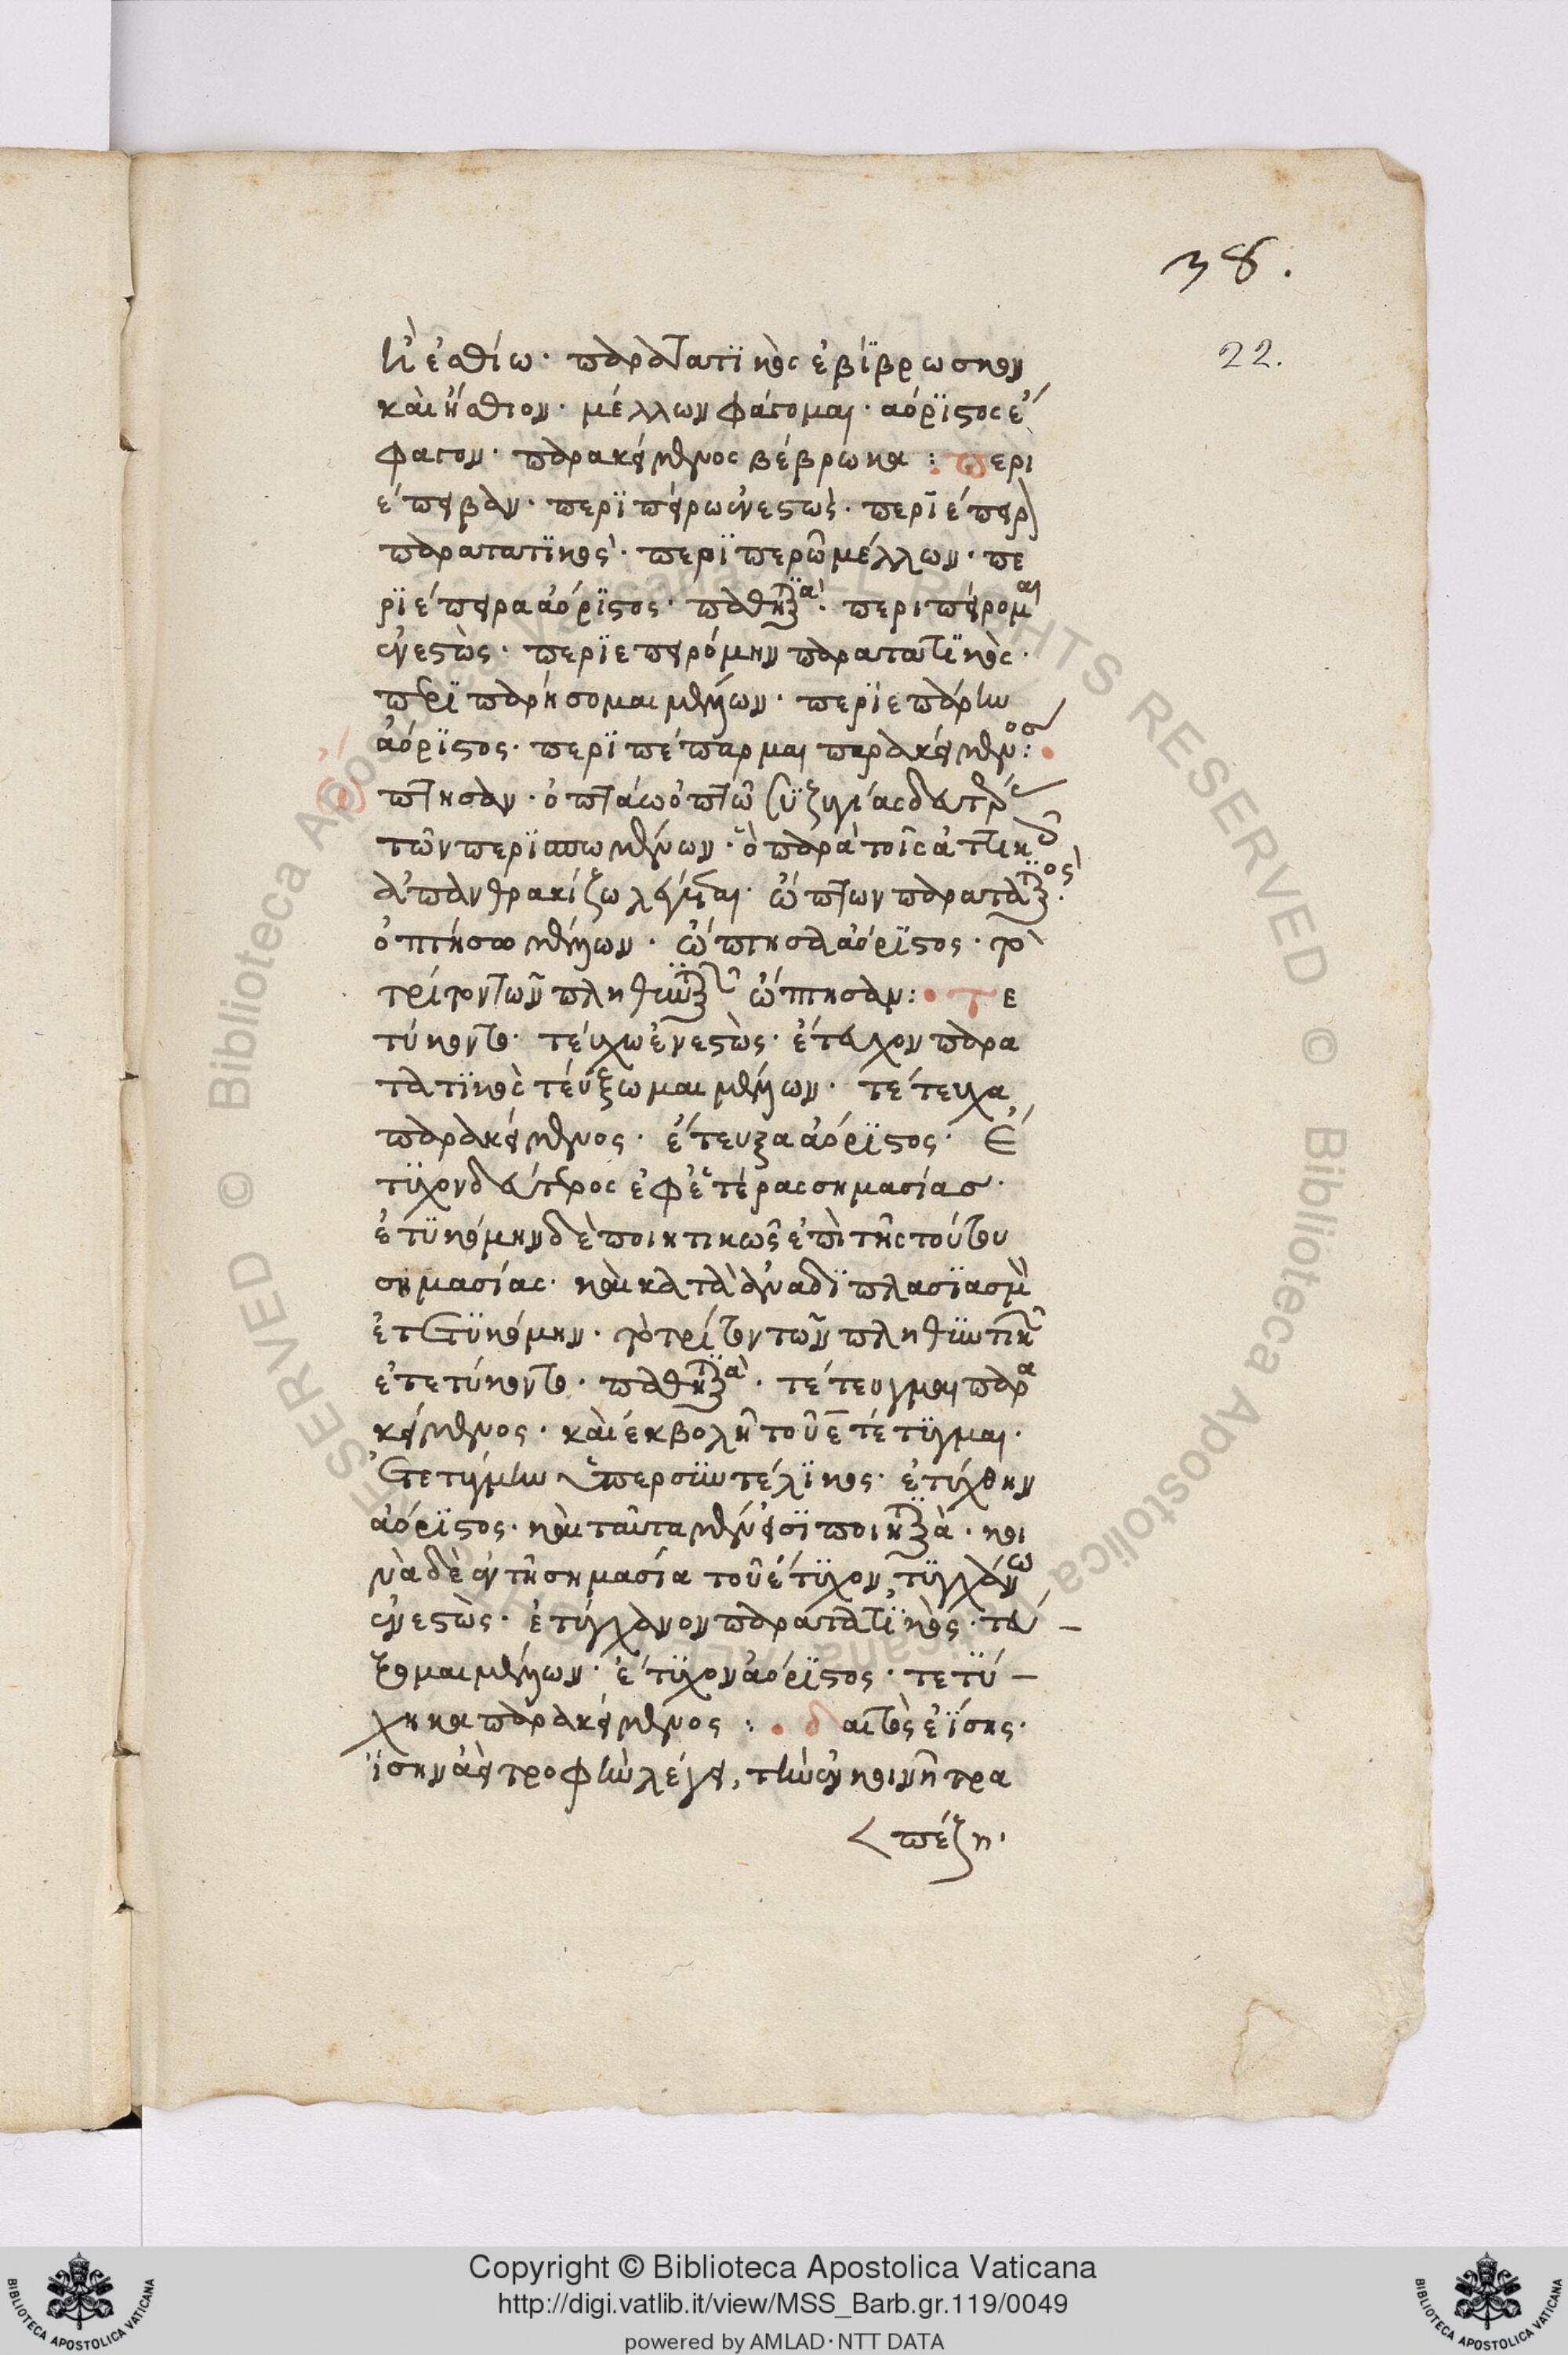 38.
22.
ἢ ἐσθίω· παρατατϊκὸς ἐβίβρωσκον
καὶ ἤσθιον· μέλλων φάγομαι· ἀόρϊστος ἔ
φαγον· παρακείμενος βέβρωκα : περι
έπειραν· περϊπείρω ἐνεστώς· περϊέπειρ
παρατατϊκός· περϊπερῶ μέλλων· πε
ρϊέπειρα ἀόρϊστος· παθητϊκά· περιπείρομαι
ἐνεστὼς· περϊεπειρόμην παρατατϊκὸς·
περϊπαρήσομαι μέλλων· περϊεπάρην
ἀόρϊστος· περϊπέπαρμαι παρακείμενος :
ὤπτησαν· ὀπτάω ὀπτῶ συζυγίας δευτέρας
τῶν περϊσπωμένων· ὃ παρὰ τοῖς ἀττικοῖς
ἀπανθρακίζω λέγεται· ὤπτων παρατατϊκός·
ὀπτήσω μέλλων· ὤπτησα ἀόρϊστος· τὸ
τρίτον τῶν πληθυντϊκῶν ὤπτησαν : τε
τύκοντο· τεύχω ἐνεστὼς· ἔτευχον παρα
τατϊκὸς τεύξωμαι μέλλων· τέτευχα
παρακείμενος· ἔτευξα ἀόρϊστος· ἔ
τϋχον δεύτερος ἐφ' ἑτέρας σημασίας·
ἐτϋκόμην δὲ ποιητικῶς ἐπὶ τῆς τούτου
σημασίας· καὶ κατὰ ἀναδϊπλασϊασμὸν
ἐτετϋκόμην· τὸ τρίτον τῶν πληθυντικῶν
ἐτετύκοντο· παθητϊκά· τέτευγμαι παρα
κείμενος· καὶ ἐκβολῆ τοῦ ε τέτϋγμαι·
ἐτετύγμην ὑπερσυντέλϊκος· ἐτύχθην
ἀόρϊστος· καὶ ταῦτα μέν εἰσϊ ποιητϊκὰ· κοι
νὰ δὲ ἐν τῆ σημασία τοῦ ἔτϋχον, τϋγχάνω
ἐνεστὼς· ἐτύγχανον παρατατϊκὸς· τεύ –
ξομαι μέλλων· ἔτϋχον ἀόρϊστος· τετϋ –
χηκα παρακείμενος : δαιτὸς ἐΐσης·
ΐσην ἀεὶ τροφὴν λέγει, τὴν ἐν κοινῆ τρα
< πέζη·
Copyright © Biblioteca Apostolica Vaticana
http://digi.vatlib.it/view/MSS_Barb.gr.119/0049
powered by AMLAD·NTT DATA